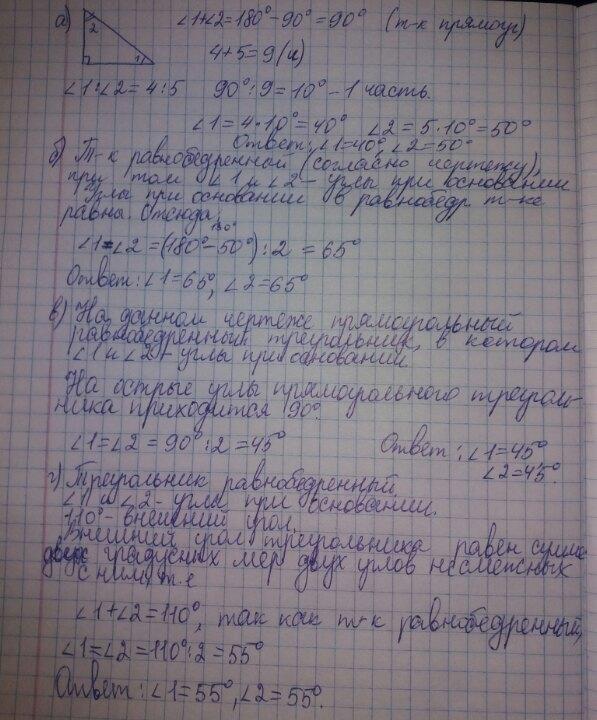 а) ∠1+∠2=180°-90°=90° (т-к прямоуг)
2
1
4+5=9(ч)
∠1:∠2=4:5 90°:9=10°-1 часть.
∠1=4·10°=40° ∠2=5·10°=50°
Ответ: ∠1=40°, ∠2=50°
б) Т-к равнобедренный (согласно чертежу),
при том ∠1 и ∠2- углы при основании
Углы при основании в равнобедр т-ке
равны. Отсюда,
180°
∠1=∠2=(180°-50°):2=65°
Ответ: ∠1=65°, ∠2=65°
в) На данном чертеже прямоугольный
равнобедренный треугольник, в котором
∠1 и ∠2- углы при основании.
На острые углы прямоугольного треуголь-
ника приходится 90°.
∠1=∠2=90°:2=45° Ответ: ∠1=45°
∠2=45°.
г) Треугольник равнобедренный.
∠1 и ∠2- углы при основании.
110°- внешний угол.
Внешний угол треугольника равен сумме
двух градусных мер двух углов несмежных
с ним, т.е
∠1+∠2=110°, так как т-к равнобедренный,
∠1=∠2=110°:2=55°
Ответ: ∠1=55°, ∠2=55°.